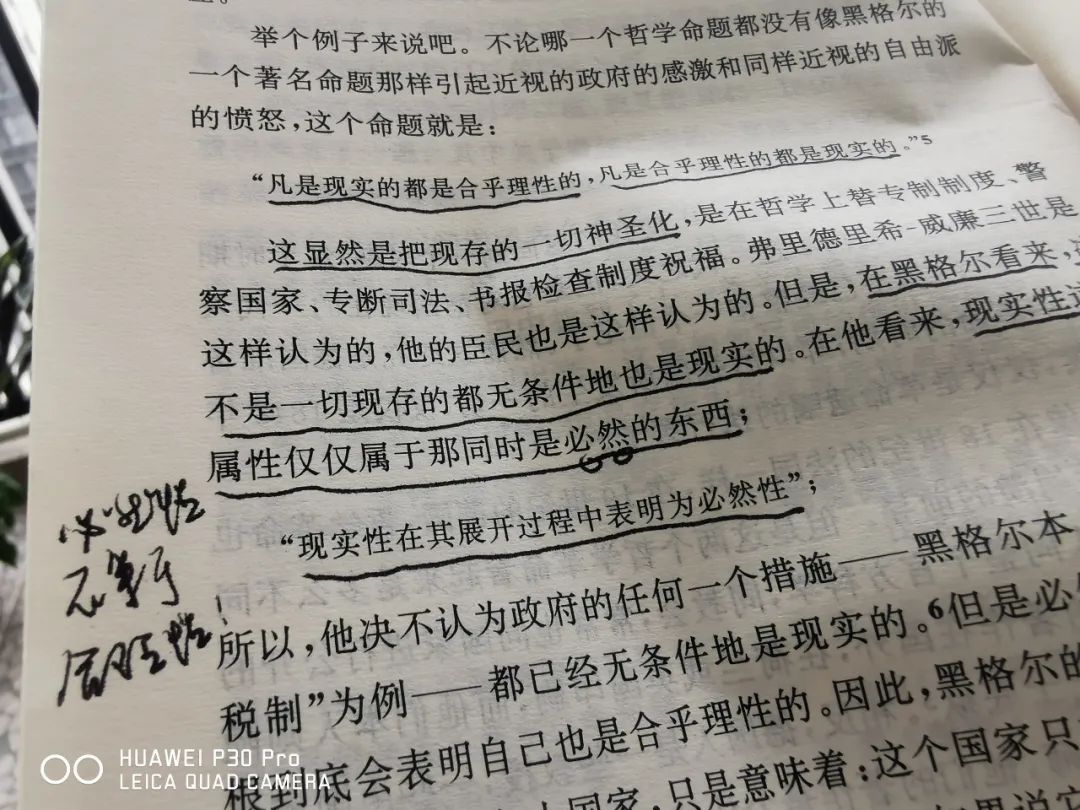 举个例子来说吧。不论哪一个哲学命题都没有像黑格尔的
一个著名命题那样引起近视的政府的感激和同样近视的自由派
的愤怒，这个命题就是：
“凡是现实的都是合乎理性的，凡是合乎理性的都是现实的。”5
这显然是把现存的一切神圣化，是在哲学上替专制制度、警
察国家、专断司法、书报检查制度祝福。弗里德里希-威廉三世是
这样认为的，他的臣民也是这样认为的。但是，在黑格尔看来，
不是一切现存的都无条件地也是现实的。在他看来，现实性这
属性仅仅属于那同时是必然的东西；
“现实性在其展开过程中表明为必然性”；
所以，他决不认为政府的任何一个措施——黑格尔本
税制”为例——都已经无条件地是现实的。6但是必
根到底会表明自己也是合乎理性的。因此，黑格尔的
国家，只是意味着：这个国家只
必然性
不等于
合理性！
HUAWEI P30 Pro
LEICA QUAD CAMERA